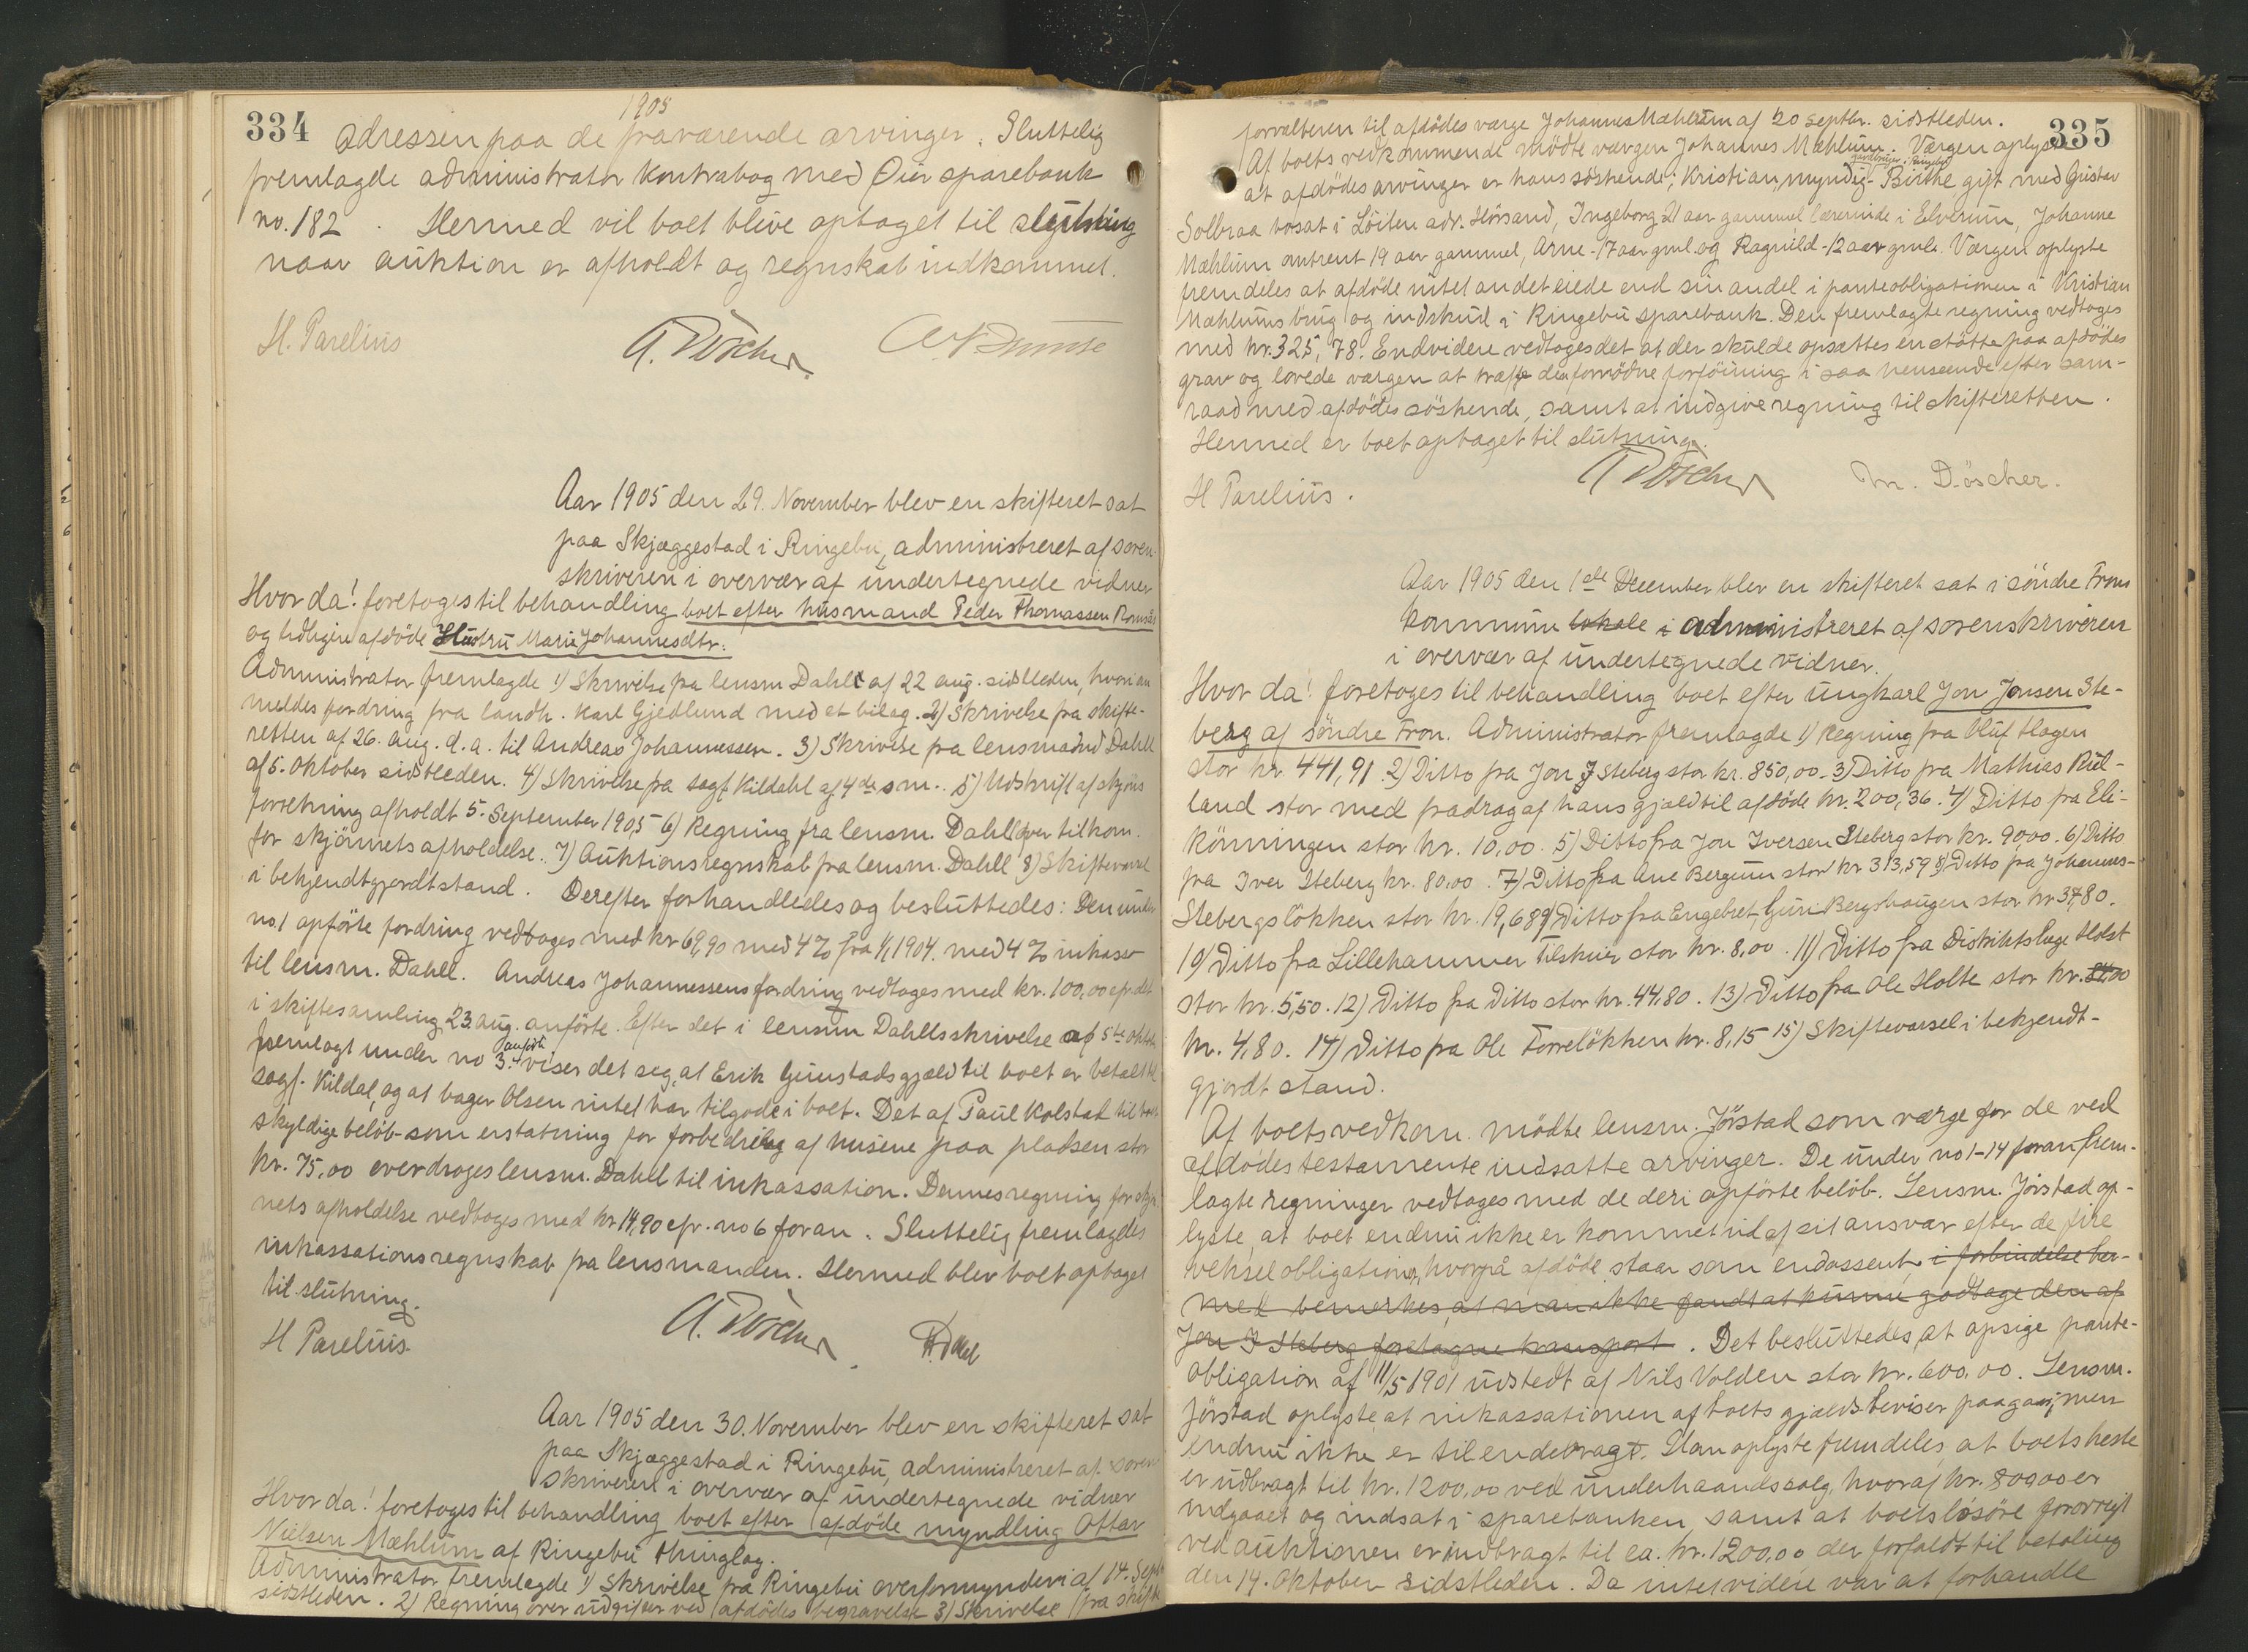 334
1905
adressen paa de fraværende arvinger. Sluttelig
fremlagde administrator Kontrabog med Øier sparebank
no. 182. Hermed vil boet blive optaget til slutning
naar auktion er afholdt og regnskab indkommet.
H. Parelius A. Döscher
Aar 1905 den 29. November blev en skifteret sat
paa Skjæggestad i Ringebu, administreret af soren-
skriveren i overvær af undertegnede vidner
Hvor da! foretoges til behandling boet efter husmand Peder Thomassen
og tidligere afdöde Hustru Marie Johannesdtr.
Administrator fremlagde 1) Skrivelse fra lensm Dahll af 22 aug. sidstleden, hvori an
meldes fordring fra landh. Karl Gjedlund med et bilag. 2) Skrivelse fra skifte-
retten af 26. Aug. d.a. til Andreas Johannessen. 3) Skrivelse fra lensmand Dahll
af 5. Oktober sidstleden. 4) Skrivelse fra sagf. Kildahl af 4de s.m.. 5) Udskrift af skjöns
forretning afholdt 5. September 1905 6) Regning fra lensm. Dahll over tilkom.
for skjönnets afholdelse. 7) Auktionsregnskab fra lensm. Dahll 8) Skiftevarsel
i bekjendtgjordt stand. Derefter forhandledes og besluttedes: Den under
no. 1 opförte fordring vedtoges med kr 69,90 med 4 % fra 1/1 1904. med 4 % inkasso
til lensm. Dahll. Andreas Johannessens fordring vedtages med kr. 100,00 cfr. det
i skiftesamling 23. aug. anförte. Efter det i lensm Dahlls skrivelse af 5te Oktbr
fremlagt under no 3. anförte viser det seg, at Erik Gunstads gjæld til boet er betalt til
sagf. Kildal, og at bager Olsen intet har tilgode i boet. Det af Paul Kolstad til boet
skyldige belöb som erstatning for forbedring af husene paa pladsen stor
kr. 75,00 overdroges lensm. Dahll til inkassation. Dennes regning for skjön
nets afholdelse vedtoges med kr 14,90 cfr. no 6 foran. Sluttelig fremlagdes
inkassationsregnskab fra lensmanden. Hermed blev boet optaget
til slutning.
H Parelius. A. Döscher
Aar 1905 den 30. November blev en skifteret sat
paa Skjæggestad i Ringebu, administreret af soren
skriveren i overvær af undertegnede vidner
Hvor da! foretoges til behandling boet efter afdöde myndling Ottar
Nielsen Mæhlum af Ringebu thinglag.
Administrator fremlagde 1) Skrivelse fra Ringebu overformynderi af 14. Sept
sidstleden. 2) Regning over udgifter ved afdödes begravelse 3) Skrivelse fra skifte
335
forvalteren til afdödes værge Johannes Mæhlum af 20 septbr. sidstleden.
Af boets vedkommende mödte værgen Johannes Mæhlum. Værgen oplyste
at afdödes arvinger er hans söskende; Kristian, myndig, gardbruger i Ringebu - Birthe gift med Gustav
Solbraa bosat i Löiten adr. Hörsand, Ingeborg 21 aar gammel lærerinde i Elverum, Johanne
Mæhlum omtrent 19 aar gammel, Arne - 17 aar gml. og Ragnild - 12 aar gml. Værgen oplyste
fremdeles at afdöde intet andet eiede end sin andel i panteobligationen i Kristian
Mæhlums brug og indskud i Ringebu sparebank. Den fremlagte regning vedtoges
med kr. 325,78. Endvidere vedtoges det at der skulde opsættes en stötte paa afdödes
grav og lovede værgen at træffe den fornödne forföining i saa henseende efter sam-
raad med afdödes söskende, samt at indgive regning til skifteretten.
Hermed er boet optaget til slutning.
H Parelius. A Döscher M. Döscher.
Aar 1905 den 1ste December blev en skifteret sat i söndre Frons
kommune lokale i administreret af sorenskriveren
i overvær af undertegnede vidner.
Hvor da! foretoges til behandling boet efter ungkarl Jon Jonsen Ste-
berg af Söndre Fron. Administrator fremlagde 1) Regning fra Oluf Hagen
stor kr. 441,91 2) Ditto fra Jon J Steberg stor kr. 850,00 - 3) Ditto fra Mathias Rul-
land stor med fradrag af hans gjæld til afdöde kr. 200,36. 4) Ditto fra Eli-
könningen stor kr. 10,00. 5) Ditto fra Jon Iversen Steberg stor kr. 90,00. 6) Ditto
fra Iver Steberg kr. 80,00. 7) Ditto fra Ane Bergum stor kr 313,59 8) Ditto fra Johannes-
Stebergslökken stor kr. 19,68 9) Ditto fra Engebret, Guri Bergshaugen stor kr 34,80.
10) Ditto fra Lillehammer Tilskuer stor kr. 8,00. 11) Ditto fra Distriktslæge Holst
stor kr. 5,50. 12) Ditto fra Ditto stor kr. 44,80. 13) Ditto fra Ole Holte stor kr.
kr. 4,80. 14) Ditto fra Ole Torrelökken kr. 8,15 15) Skiftevarsel i bekjendt-
gjordt stand.
Af boets vedkom. mödte lensm. Jörstad som værge for de ved
afdödes testamente indsatte arvinger. De under no 1-14 foran frem-
lagte regninger vedtoges med de deri opförte belöb. Lensm. Jörstad op-
lyste, at boet endnu ikke er kommet ud af sit ansvar efter de fire
vekselobligationer, hvorpå afdöde staar som endossent, i forbindelse her-
med bemerkes, at man ikke fandt at kunne godtage den af
Jon I Steberg foretagne transport. Det besluttedes, at opsige pante-
obligation af 11/5 1901 udstedt af Nils Volden stor kr. 600,00. Lensm.
Jörstad oplyste, at inkassationen af boets gjældsbeviser paagaar, men
endnu ikke er tilendebragt. Han oplyste fremdeles, at boets heste
er udbragt til kr. 1200,00 ved underhaandssalg, hvoraf kr. 800,00 er
indgaaet og indsat i sparebanken, samt at boets lösöre forövrigt
ved auktionen er indbragt til ca. kr. 1200,00 der forfaldt til betaling
den 14. Oktober sidstleden. Da intet videre var at forhandle